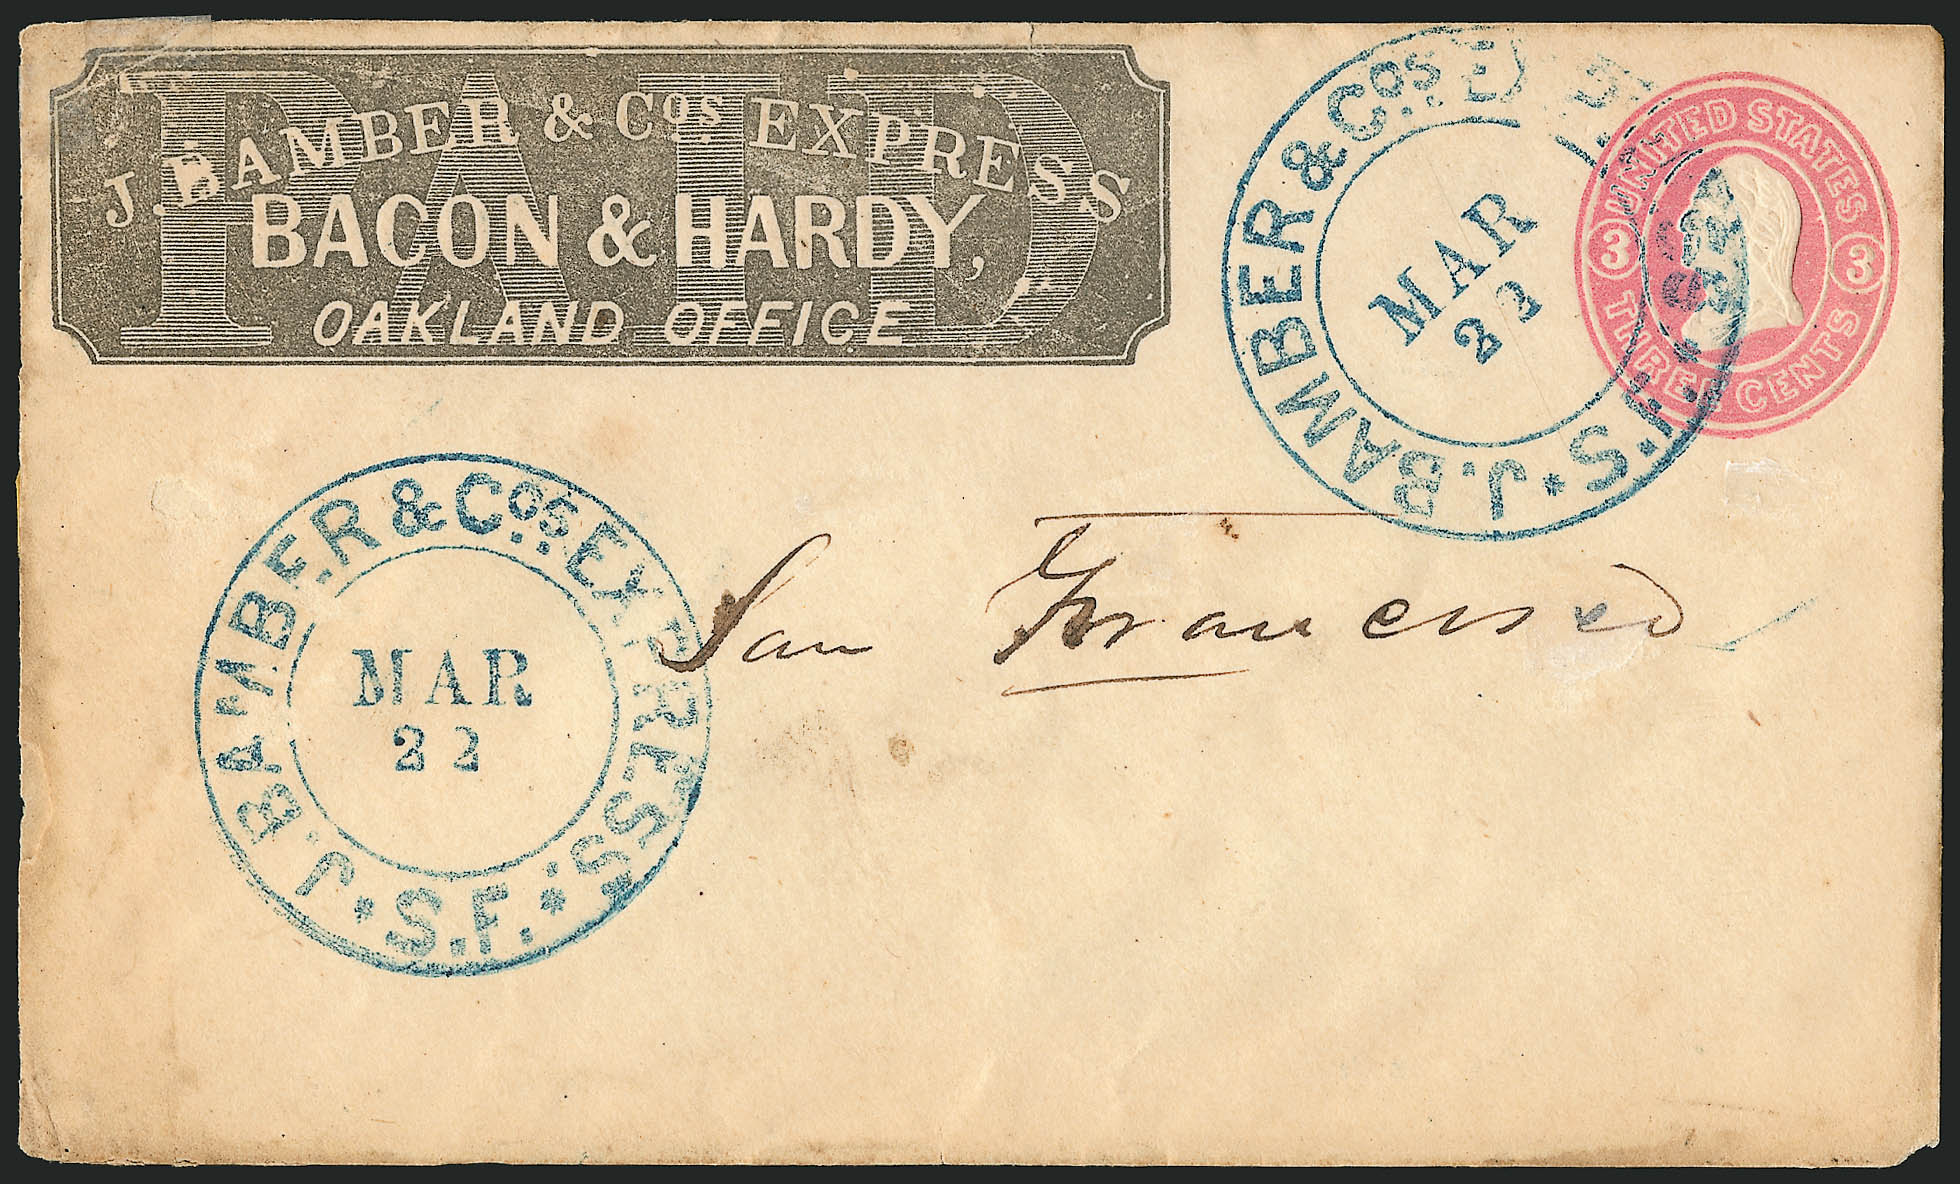 PAID
J. BAMBER & Cos EXPRESS
BACON & HARDY,
OAKLAND OFFICE
J. BAMBER & Cos EXPRESS * S.F. *
MAR
22
UNITED STATES
3 3
THREE CENTS
J. BAMBER & Cos EXPRESS * S.F. *
MAR
22
San Francisco